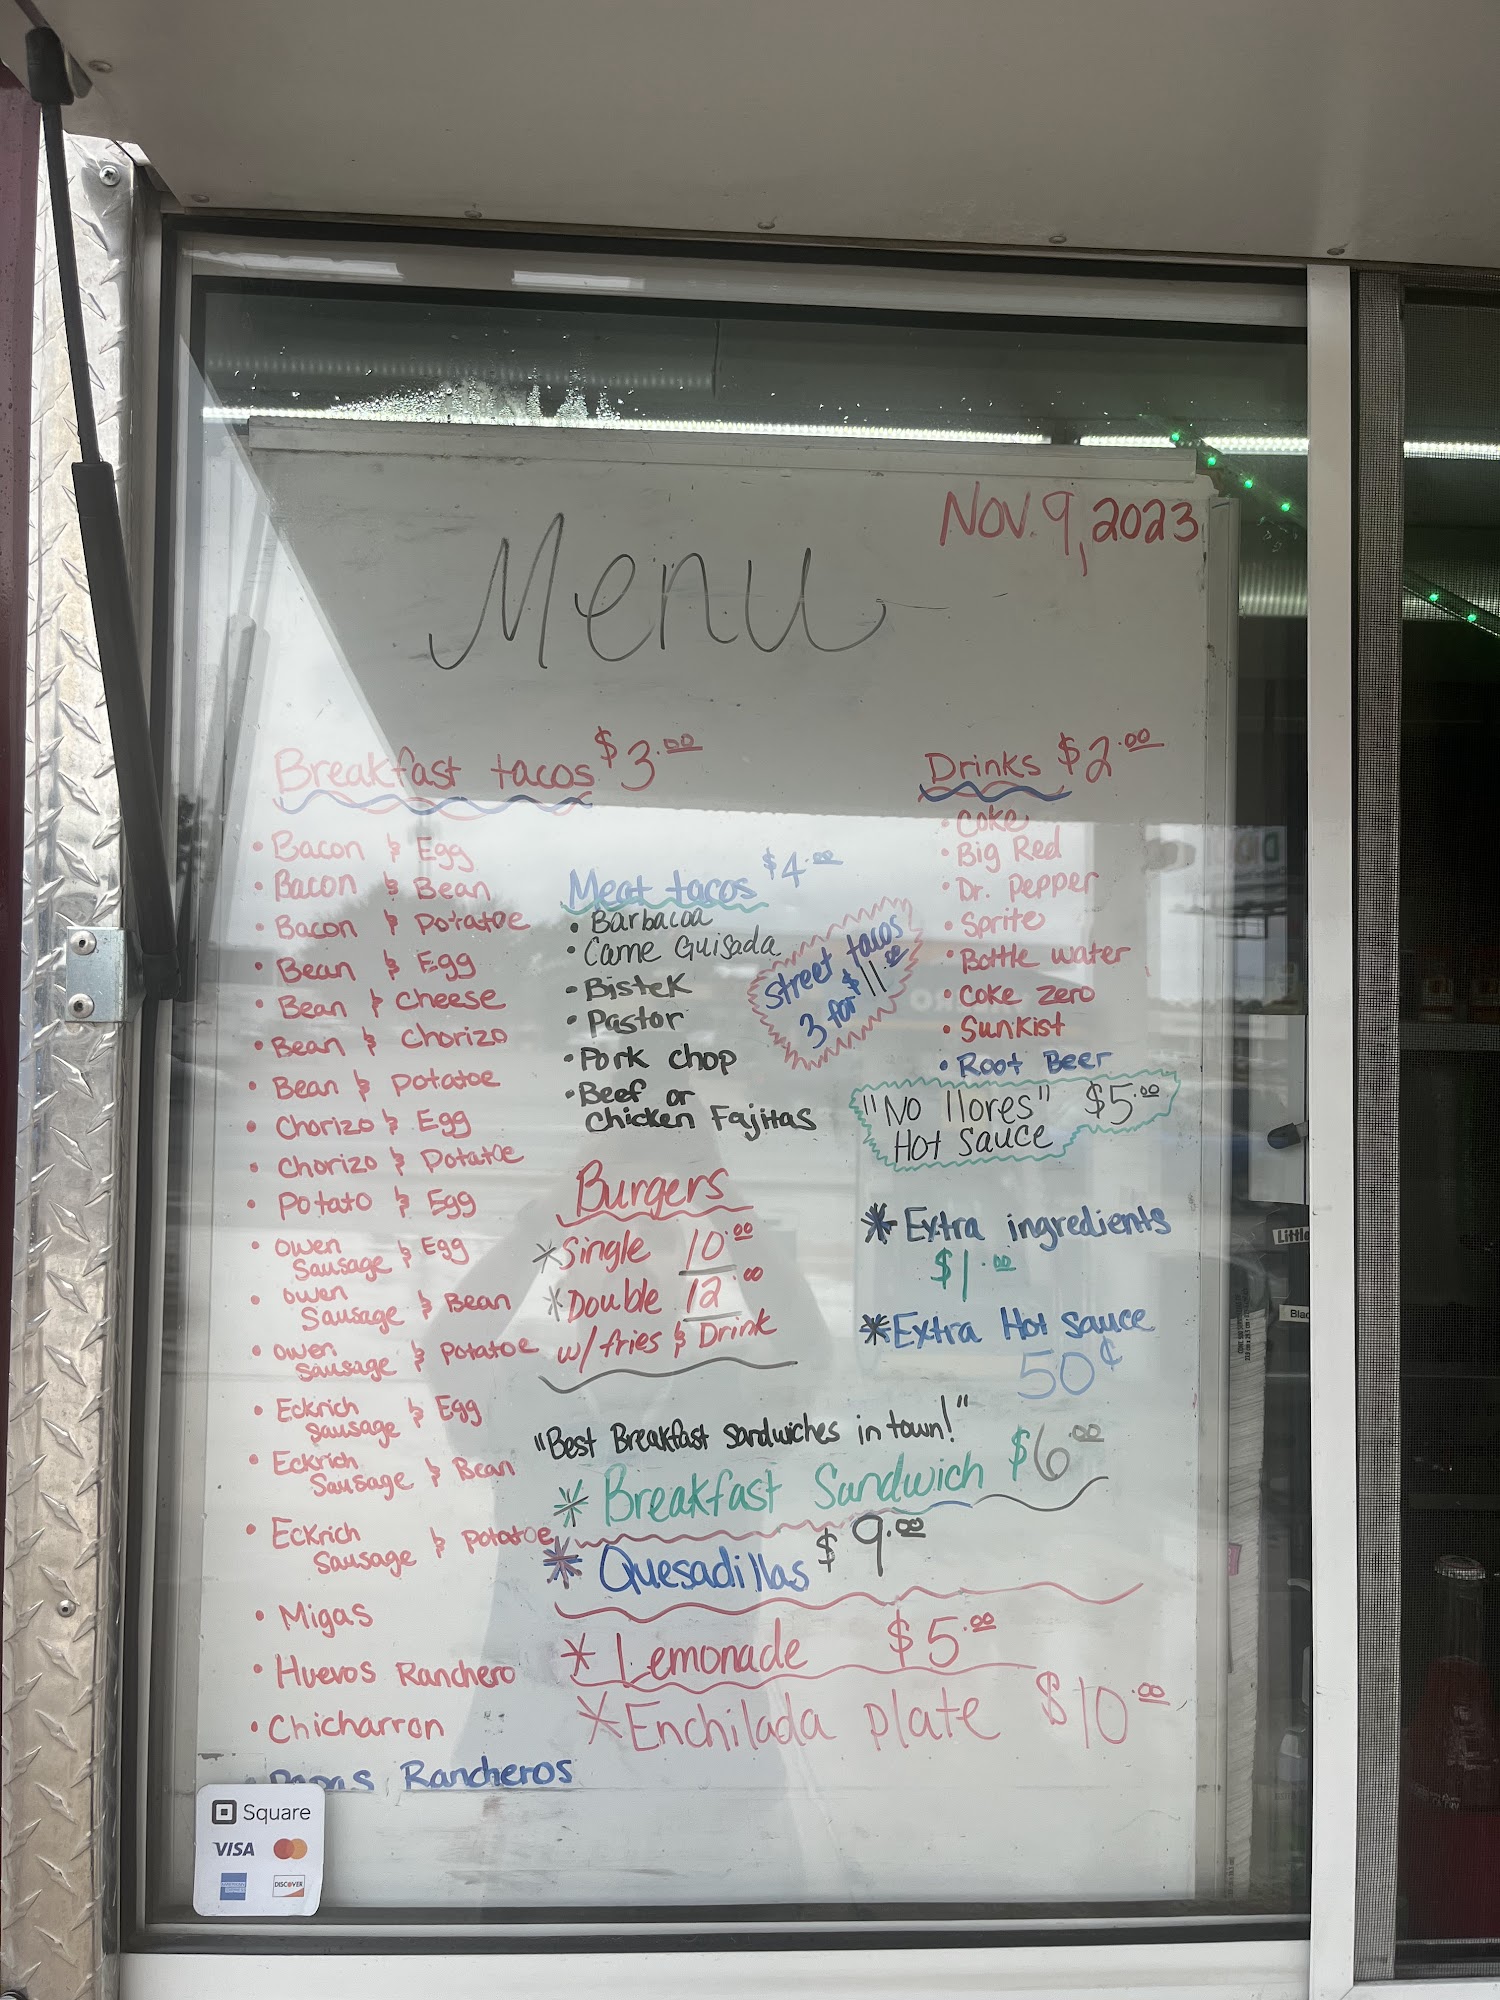 Nov. 9, 2023
Menu
Breakfast tacos $3.00
• Bacon & Egg
• Bacon & Bean
• Bacon & Potatoe
• Bean & Egg
• Bean & Cheese
• Bean & Chorizo
• Bean & Potatoe
• Chorizo & Egg
• Chorizo & Potatoe
• Potato & Egg
• Owen Sausage & Egg
• Owen Sausage & Bean
• Owen Sausage & Potatoe
• Eckrich Sausage & Egg
• Eckrich Sausage & Bean
• Eckrich Sausage & Potatoe
• Migas
• Huevos Ranchero
• Chicharron
• Papas Rancheros
Meat tacos $4.00
• Barbacoa
• Carne Guisada
• Bistek
• Pastor
• Pork chop
• Beef or
Chicken Fajitas
Street tacos
3 for $11.00
Drinks $2.00
• Coke
• Big Red
• Dr. Pepper
• Sprite
• Bottle water
• Coke Zero
• Sunkist
• Root Beer
"No llores" $5.00
Hot Sauce
Burgers
*Single 10.00
*Double 12.00
w/ fries & Drink
* Extra ingredients
$1.00
*Extra Hot Sauce
50¢
"Best Breakfast sandwiches in town!"
* Breakfast Sandwich $6.00
* Quesadillas $9.00
* Lemonade $5.00
*Enchilada plate $10.00
Square
VISA
DISCOVER